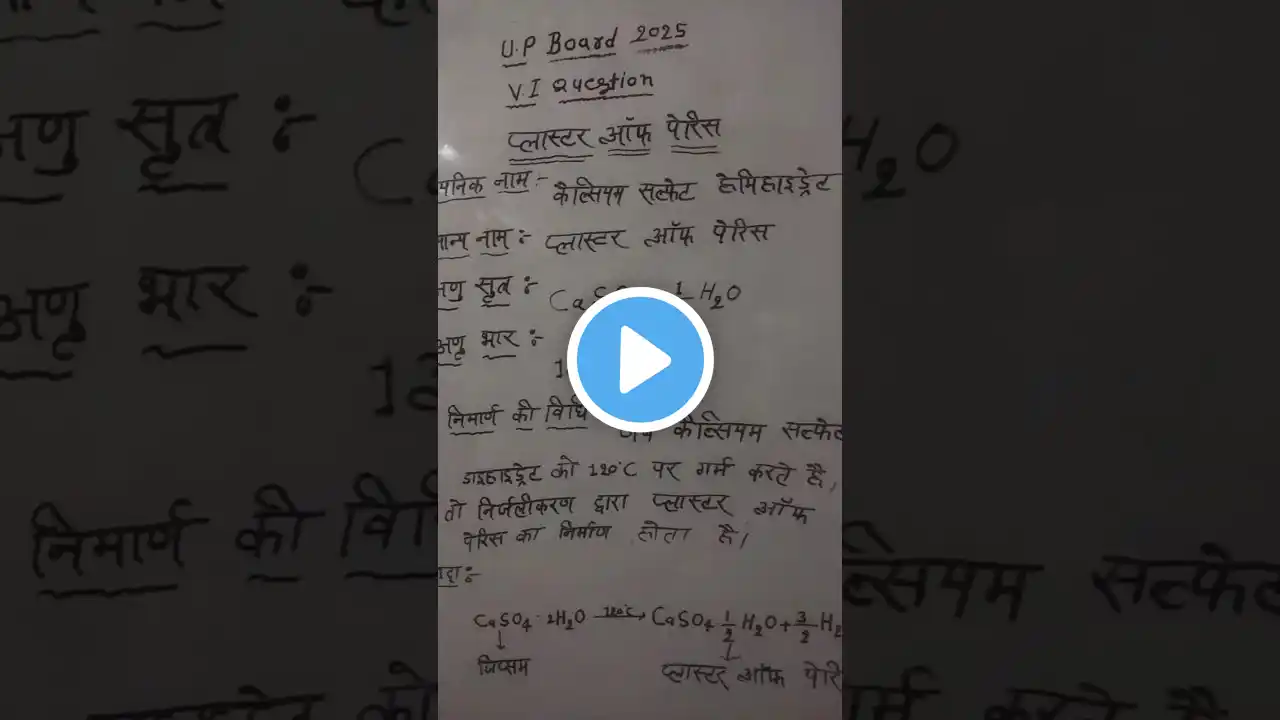 U.P Board 2025
V.I Question
प्लास्टर ऑफ पेरिस
यनिक नाम :- कैल्सियम सल्फेट हेमिहाइड्रेट
मान्य नाम :- प्लास्टर ऑफ पेरिस
अणु सूत्र :- CaSO 1/2 H₂O
अणु भार :-
निमार्ण की विधि कैल्सियम सल्फेट
डाइहाइड्रेट को 120°C पर गर्म करते है,
तो निर्जलीकरण द्वारा प्लास्टर ऑफ
पेरिस का निर्माण होता है।
CaSO₄·2H₂O 120°C→ CaSO₄ 1/2 H₂O + 3/2 H₂
↓ ↓
जिप्सम प्लास्टर ऑफ पेरि